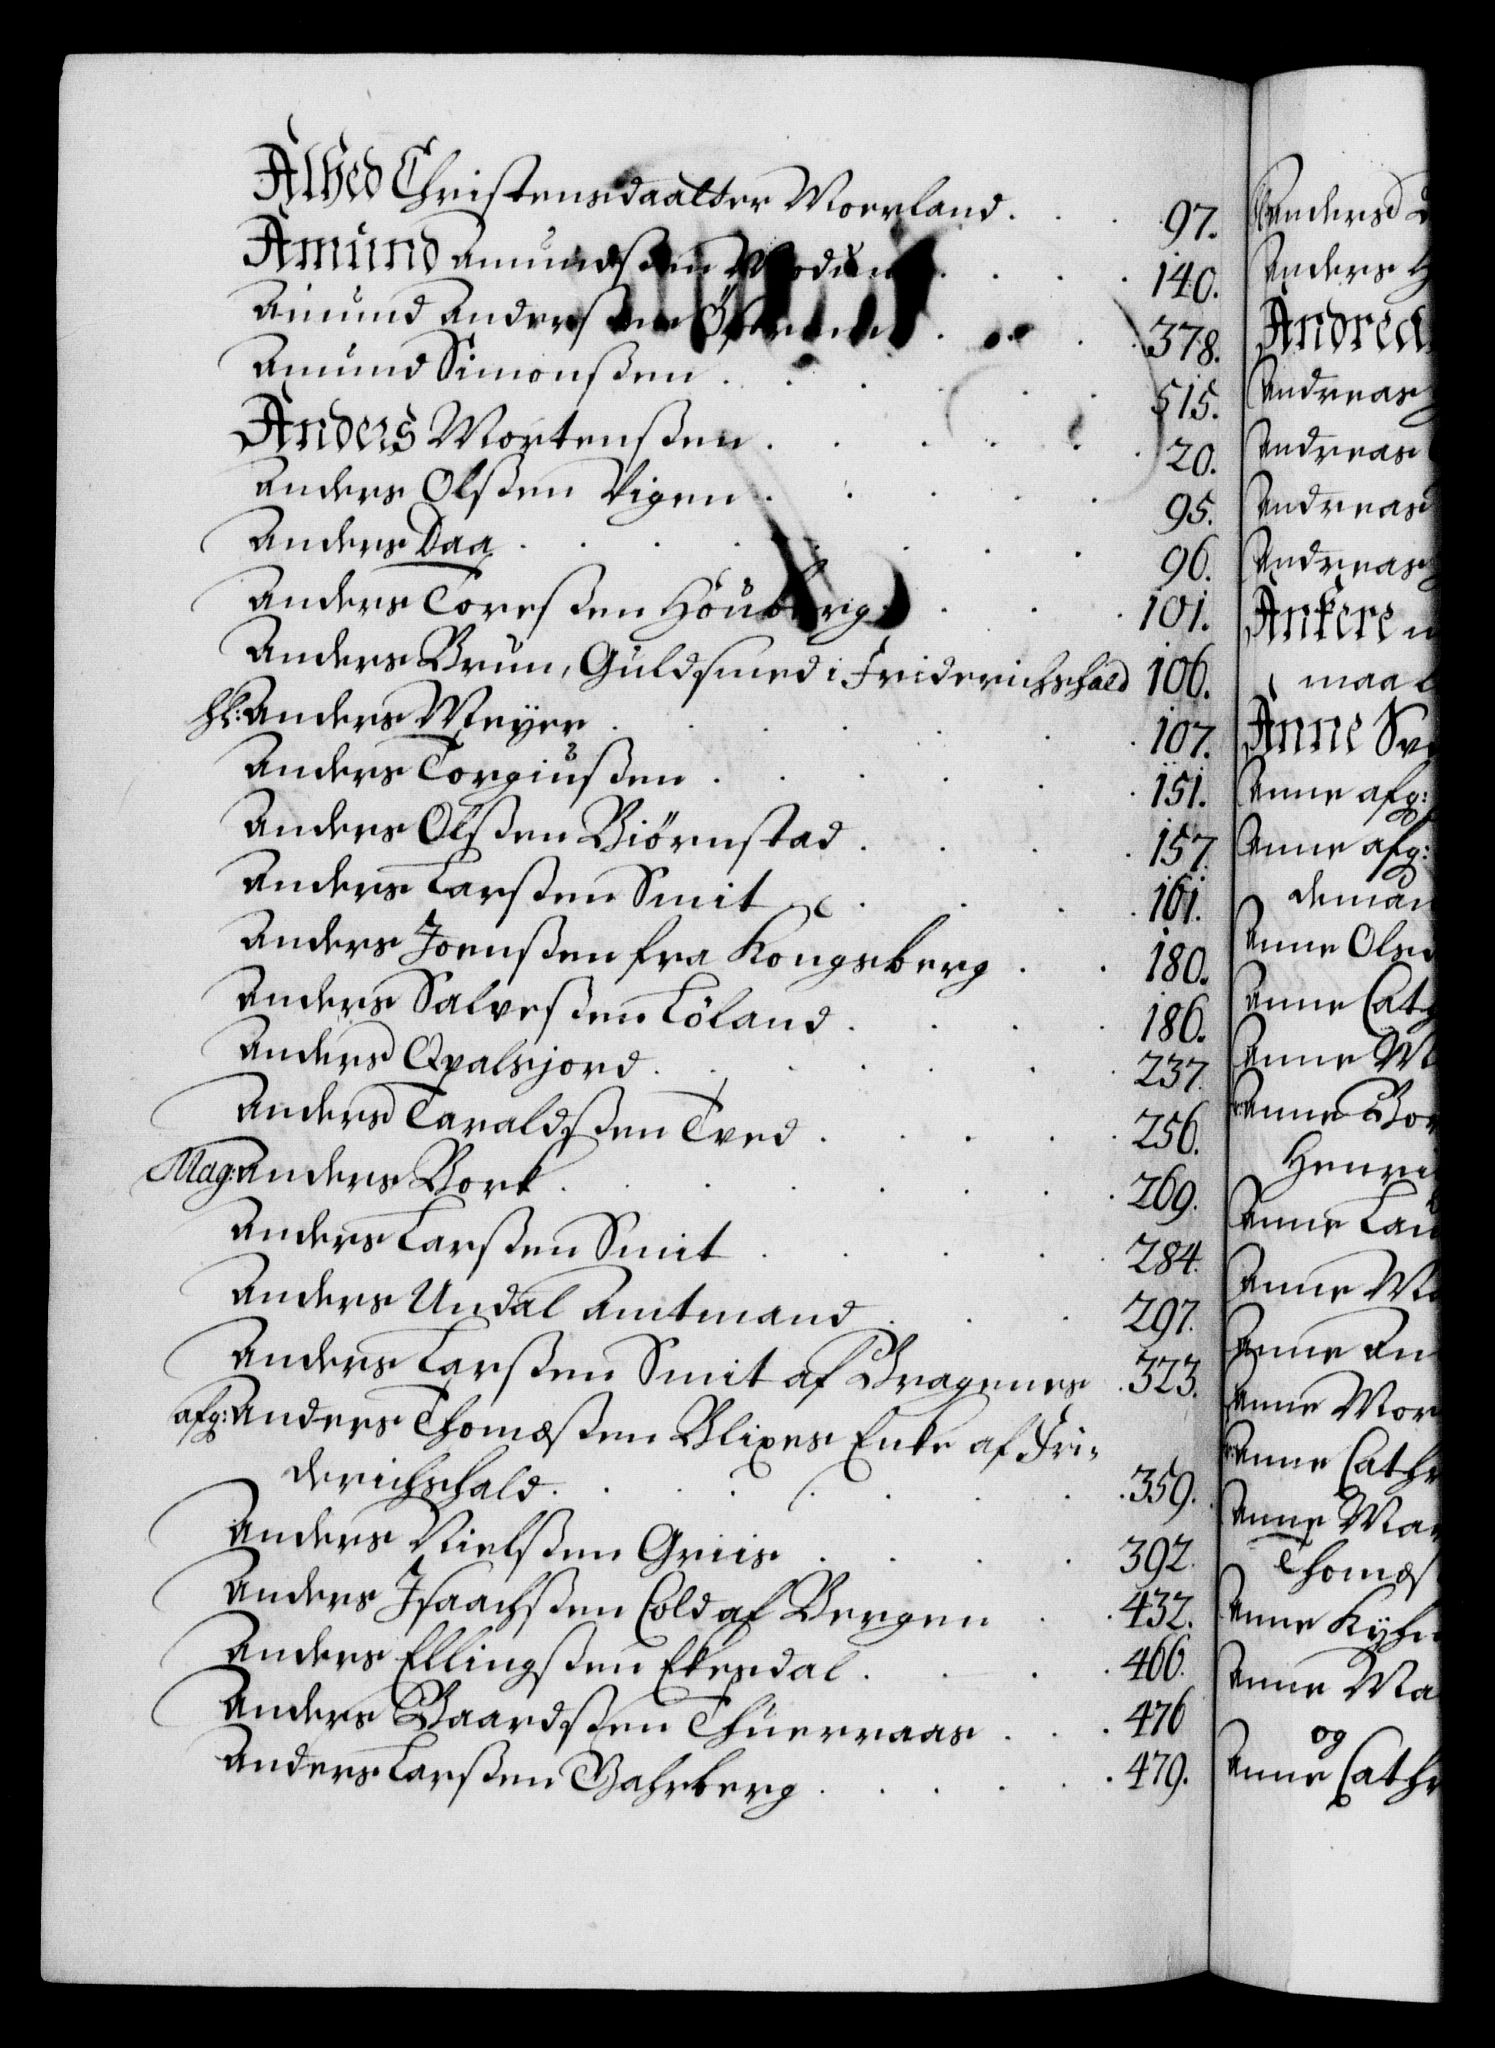 Alhed Christensdaatter Moerland . . . 97.
Amund Amundsßen Modum . . . . 140.
Amund Andersßen . . . . 378.
Amund Simonßen . . . . . . 515.
Anders Mortensßen . . . . . . 20.
Anders Olsßen Vigen . . . . . 95.
Anders Daa . . . . . . . 96.
Anders Toresßen Höuberg . . . 101.
Anders Brun, Guldsmed i Friderichshald 106.
Hl: Anders Meyer . . . . . . 107.
Anders Torgiusßen . . . . . . 151.
Anders Olsßen Biörnstad . . . . 157.
Anders Larsßen Smit . . . . . 161.
Anders Joensßen fra Kongsberg . . 180.
Anders Salvesßen Löland . . . . 186.
Anders Qvalsjord . . . . . . 237.
Anders Taraldsßen Tved . . . . . 256.
Mag: Anders Bork . . . . . . . 269.
Anders Larsßen Smit . . . . . 284.
Anders Undal Amtmand . . . 297.
Anders Larsßen Smit af Bragenes . 323.
afg: Anders Thomæsßen Blixes Enke af Fri-
derichshald . . . . . . . . 359.
Anders Nielsßen Griis . . . . 392.
Anders Isaachsßen Cold af Bergen . . 432.
Anders Ellingsßen Ekesdal . . . . 466.
Anders Baardsßen Thuerraas . . . 476
Anders Larsßen Vahrberg . . . . . 479.
Anders
Anders H
Andrea
Andreas
Andreas
Andreas
Andreas
Ankere
maal
Anne Sve
Anne afg:
Anne afg:
deman
Anne Olsd
Anne Cath
Anne M
Anne Bor
Henri
Anne Lau
Anne Ma
Anne An
Anne Mor
Anne Cathr
Anne Mar
Thomæs
Anne Kyhn
Anne Ma
og
Anne Cathr